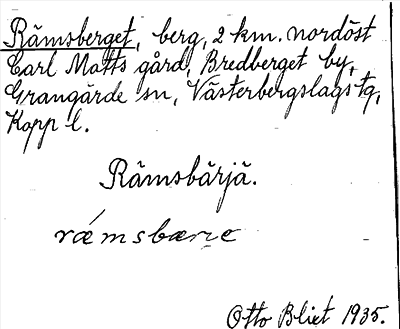 Rämsberget, berg, 2 km. nordöst
Carl Matts gård, Bredberget by,
Grangärde sn, Västerbergslags tg,
Kopp l.
Rämsbärjä.
Otto Blixt 1935.